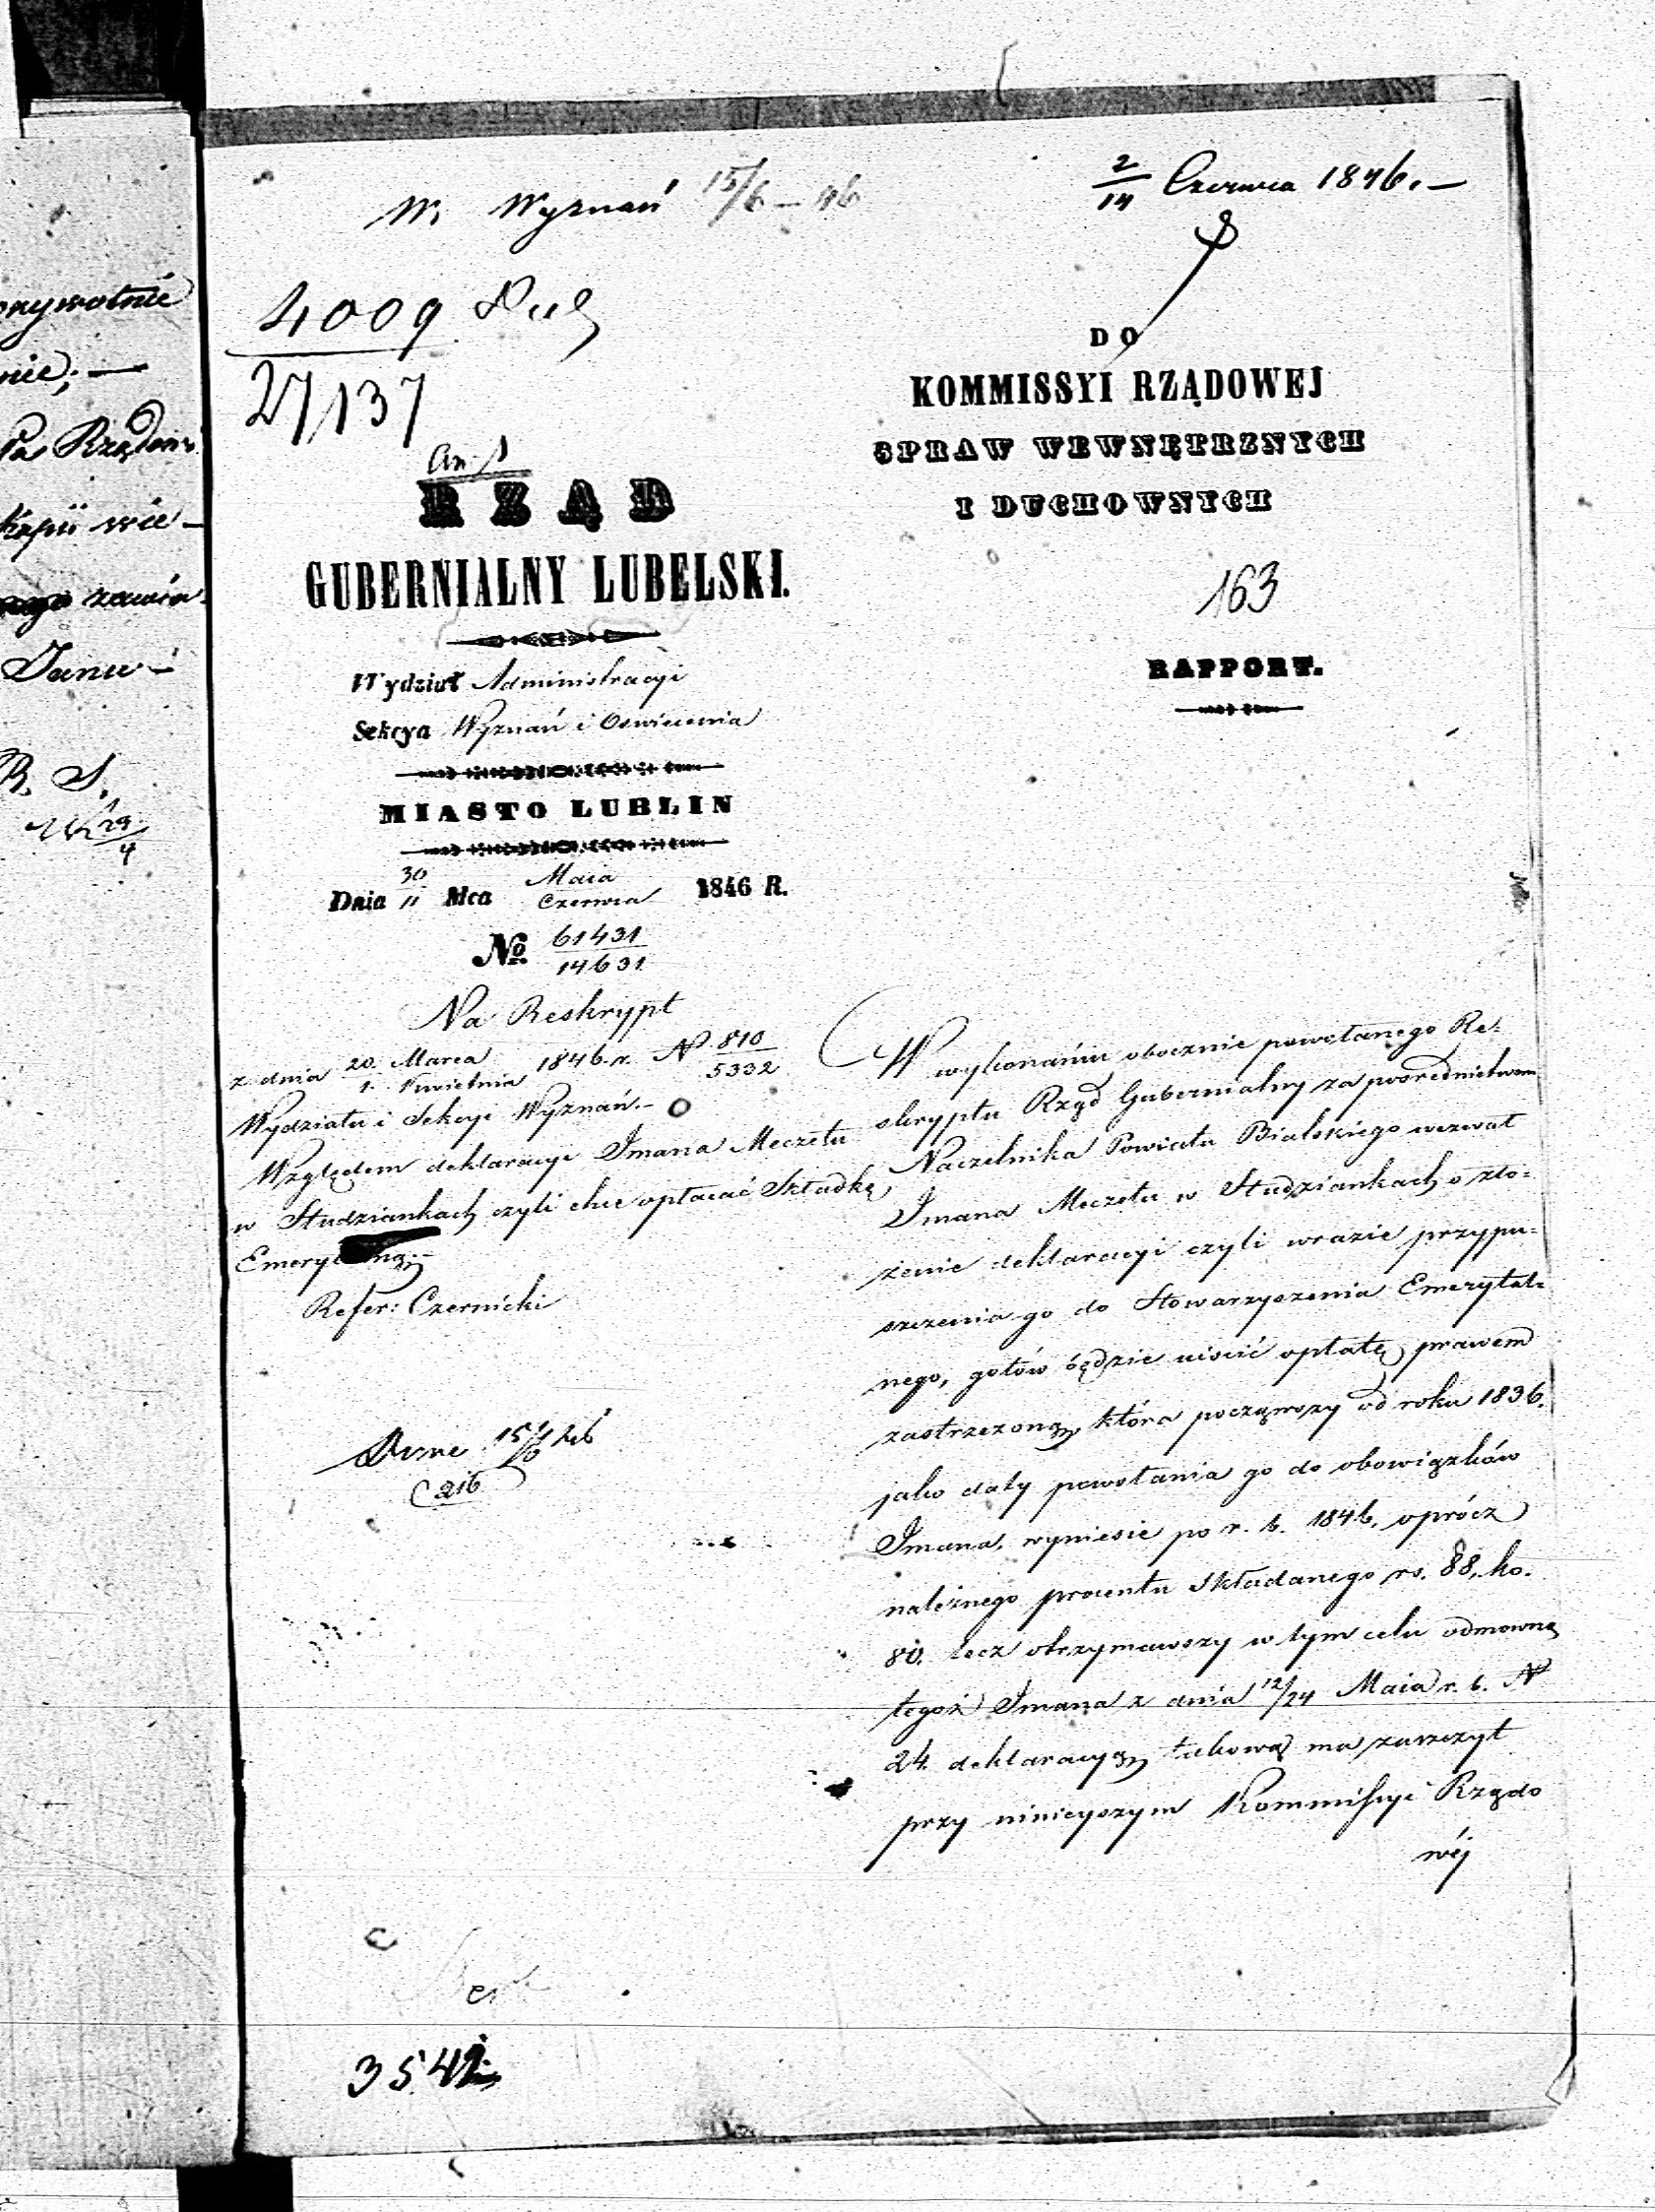 nie; —
Kopii wie-
Janu-
R. S.
29
4
W. Wyznań 15/6 – 46
2/14 Czerwca 1846. –
4009
27137
DO
KOMMISSYI RZĄDOWEJ
SPRAW WEWNĘTRZNYCH
I DUCHOWNYCH
163
RAPPORT.
RZĄD
GUBERNIALNY LUBELSKI.
Wydział Administracyi
Sekcya Wyznań i Oswiecenia
MIASTO LUBLIN
Dnia 30/11 Mca Maia/Czerwca 1846 R.
No. 61431/14631
Na Reskrypt
z dnia 20. Marca/1. Kwietnia 1846. r. N 810/5332
Wydziału i Sekcyi Wyznań. –
Względem deklaracyi Imana Meczetu
w Studziankach czyli chce opłacać Składkę
Emerytalną. –
Refer: Czernicki
15/6 46
216
W wykonaniu obocznie powołanego Re-
skryptu Rząd Gubernialny za pośrednictwem
Naczelnika Powiatu Bialskiego wezwał
Imana Meczetu w Studziankach o zło-
żenie deklaracyi czyli wrazie przypu-
szczenia go do Stowarzyszenia Emerytal-
nego, gotów będzie uiścić opłatę prawem
zastrzeżoną, która począwszy od roku 1836.
jako daty powołania go do obowiązków
Imana, wyniesie po r. b. 1846. oprócz
należnego procentu składanego rs. 88. ko.
80. lecz otrzymawszy w tym celu odmowną
tegoż Imana z dnia 12/24 Maia r. b. N
24. deklaracyą, takową ma zaszczyt
przy ninieyszym Kommissyi Rządo
wéj
3542